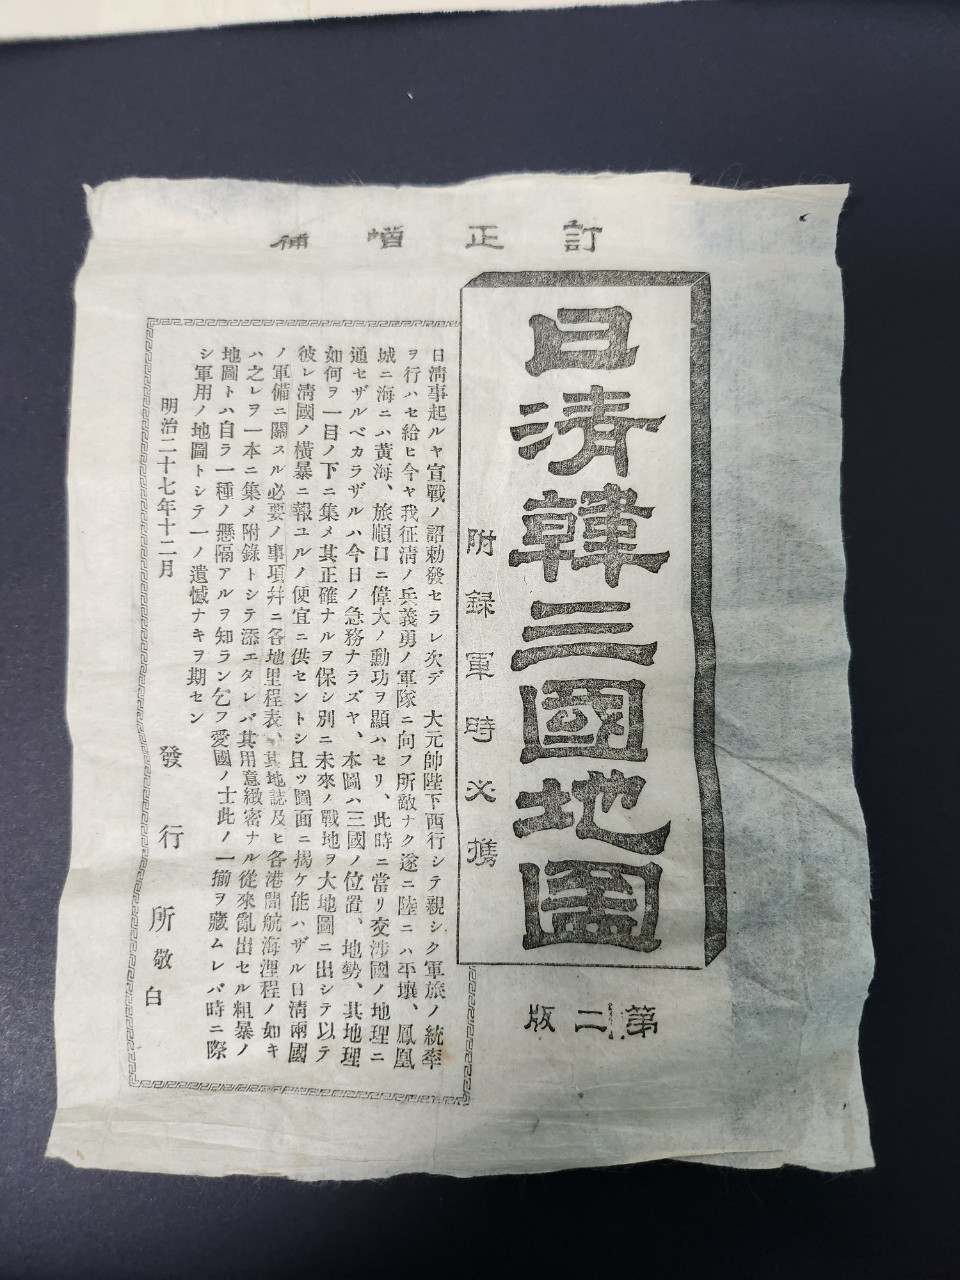 訂正增補
日清韓三國地圖
附錄軍時必携
第二版
日淸事起ルヤ宣戰ノ詔勅發セラレ次デ　大元帥陛下西行シテ親シク軍旅ノ統率
ヲ行ハセ給ヒ今ヤ我征淸ノ兵義勇ノ軍隊ニ向フ所敵ナク遂ニ陸ニハ平壤、鳳凰
城ニ海ニハ黃海、旅順口ニ偉大ノ勳功ヲ顯ハセリ、此時ニ當リ交涉國ノ地理ニ
通セザルベカラザルハ今日ノ急務ナラズヤ、本圖ハ三國ノ位置、地勢、其地理
如何ヲ一目ノ下ニ集メ其正確ナルヲ保シ別ニ未來ノ戰地ヲ大地圖ニ出シテ以テ
彼レ淸國ノ橫暴ニ報ユルノ便宜ニ供セントシ且ツ圖面ニ揭ケ能ハザル日淸兩國
ノ軍備ニ關スル必要ノ事項幷ニ各地里程表、其地誌及ヒ各港間航海浬程ノ如キ
ハ之レヲ一本ニ集メ附錄トシテ添エタレバ其用意緻密ナル從來亂出セル粗暴ノ
地圖トハ自ラ一種ノ懸隔アルヲ知ラン乞フ愛國ノ士此ノ一揃ヲ藏ムレバ時ニ際
シ軍用ノ地圖トシテ一ノ遺憾ナキヲ期セン
明治二十七年十二月
發行所敬白